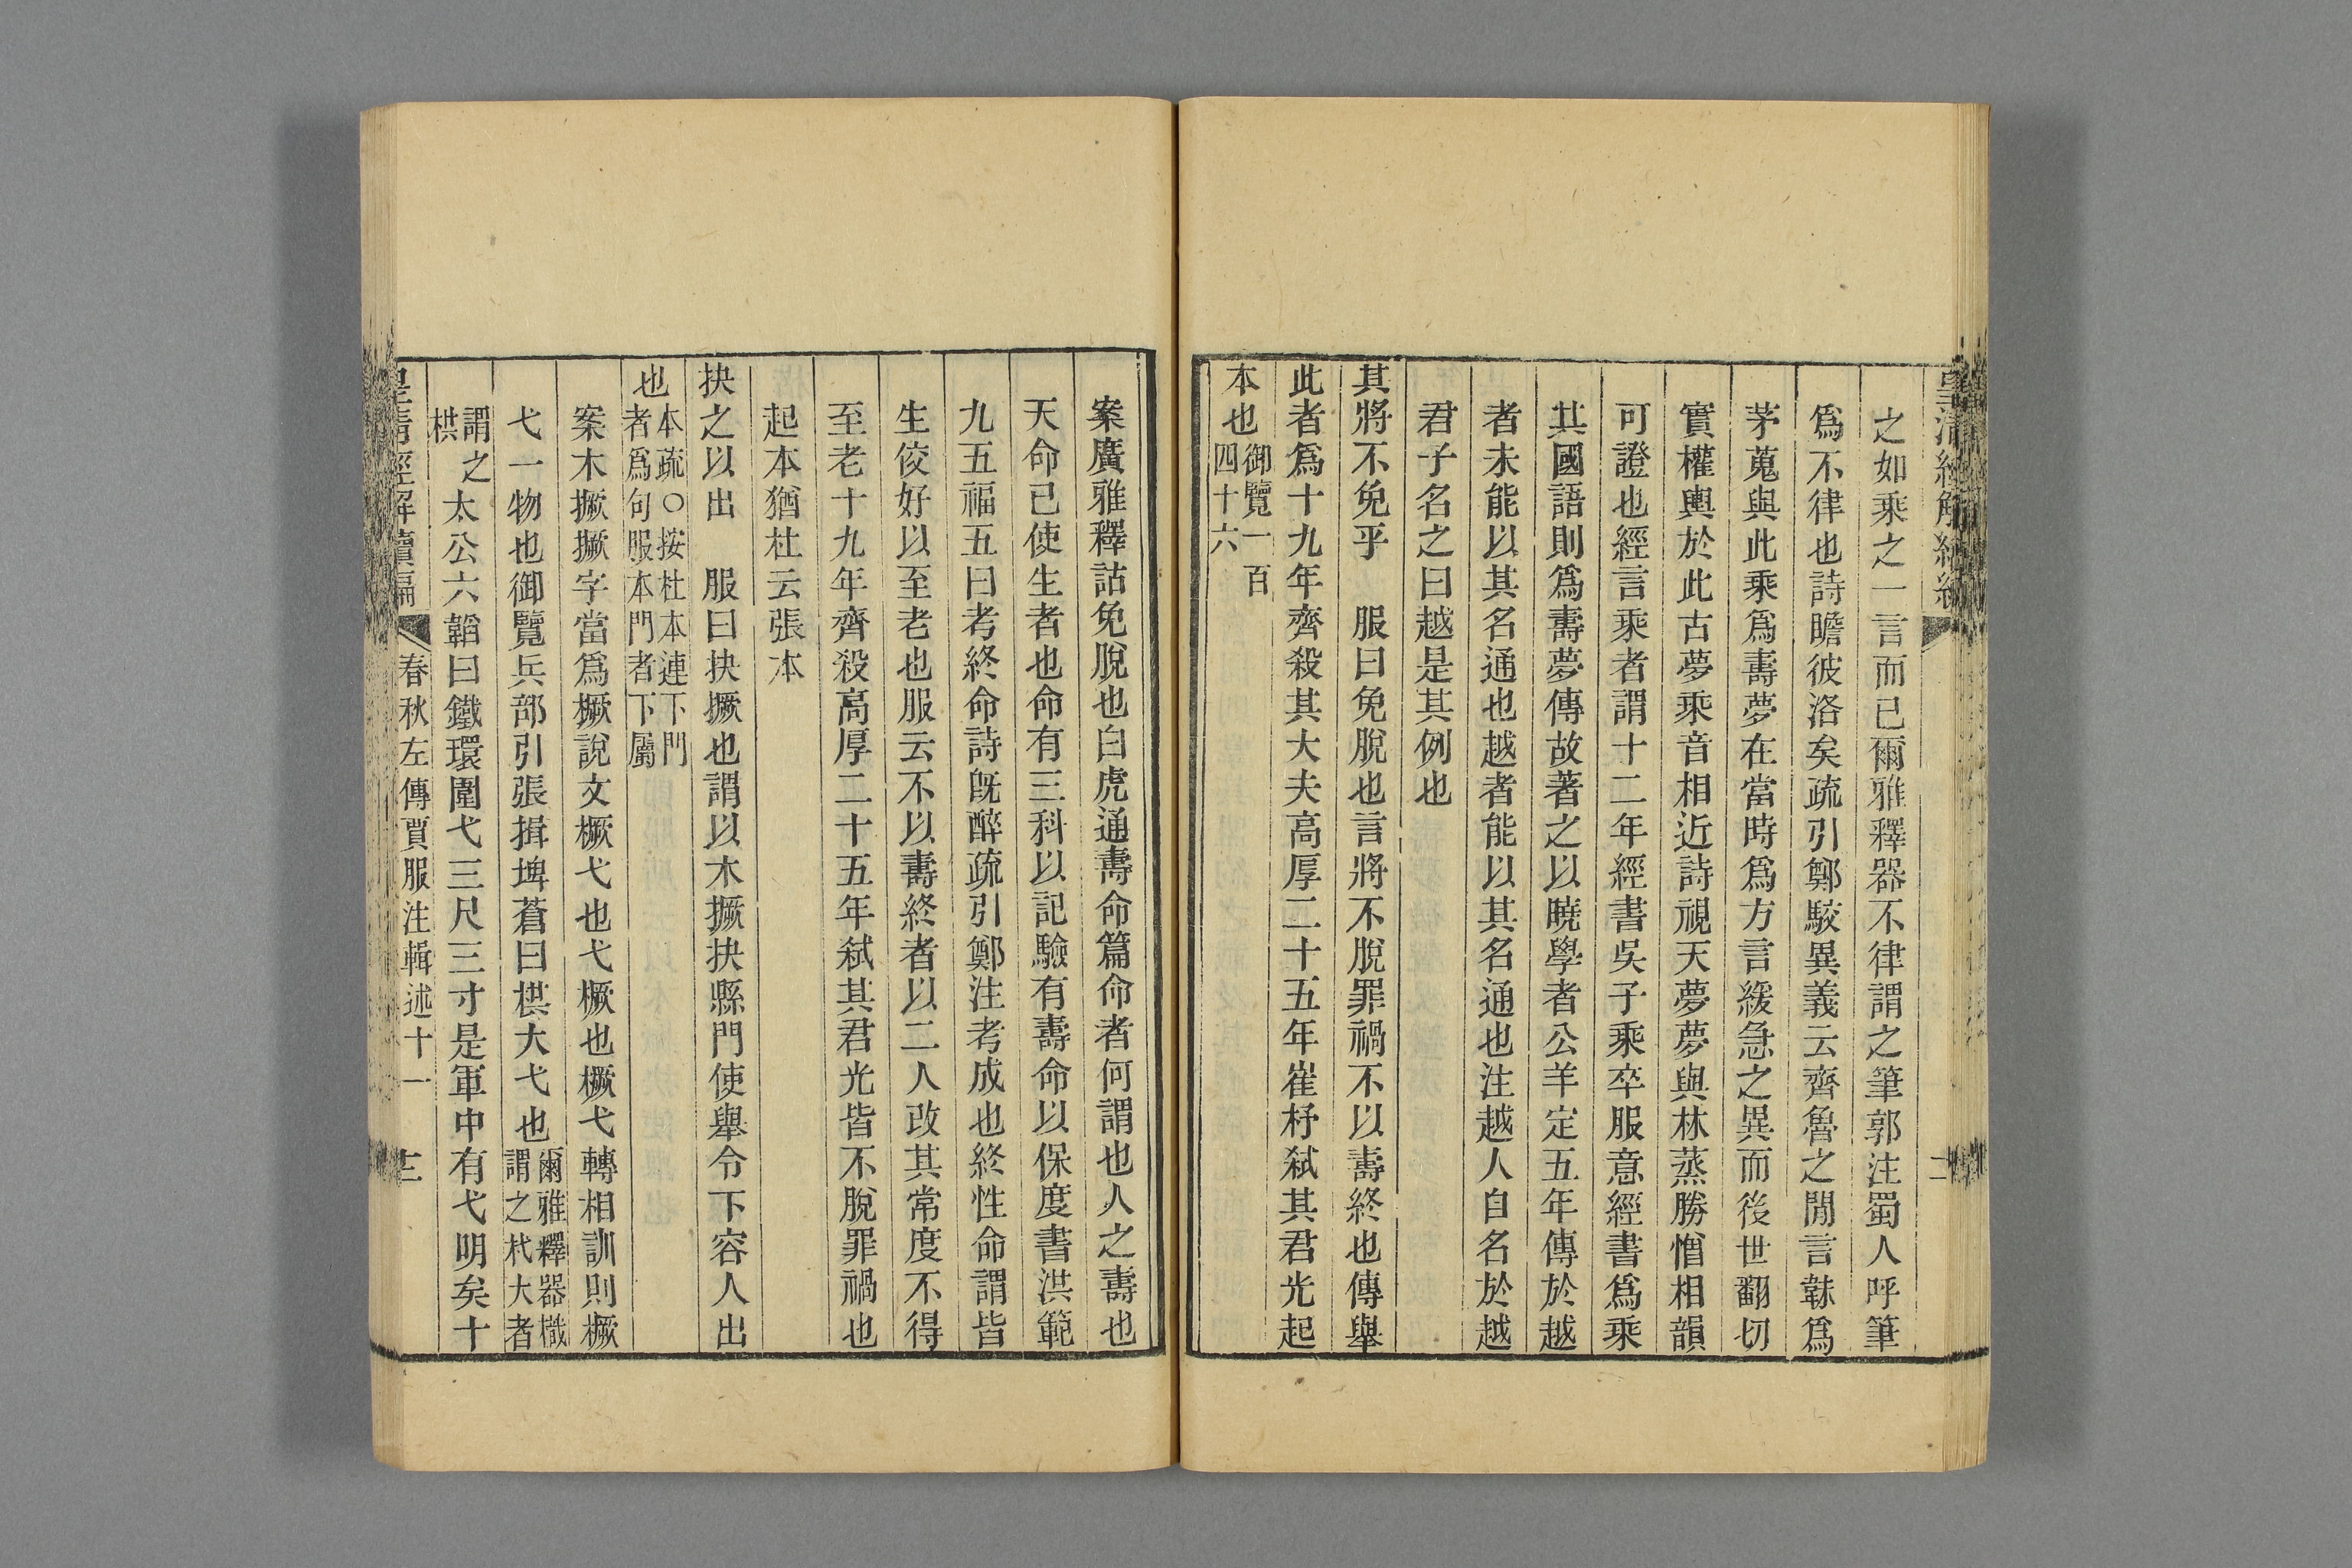 皇清經解續編
二
之如乘之一言而已爾雅釋器不律謂之筆郭注蜀人呼筆
爲不律也詩瞻彼洛矣疏引鄭駮異義云齊魯之閒言韎爲
茅蒐與此乘爲壽夢在當時爲方言緩急之異而後世翻切
實權輿於此古夢乘音相近詩視天夢夢與林蒸勝憎相韻
可證也經言乘者謂十二年經書吳子乘卒服意經書爲乘
其國語則爲壽夢傳故著之以曉學者公羊定五年傳於越
者未能以其名通也越者能以其名通也注越人自名於越
君子名之曰越是其例也
其將不免乎　服曰免脫也言將不脫罪禍不以壽終也傳舉
此者爲十九年齊殺其大夫高厚二十五年崔杼弑其君光起
本也御覽一百
四十六
案廣雅釋詁免脫也白虎通壽命篇命者何謂也人之壽也
天命已使生者也命有三科以記驗有壽命以保度書洪範
九五福五曰考終命詩旣醉疏引鄭注考成也終性命謂皆
生佼好以至老也服云不以壽終者以二人改其常度不得
至老十九年齊殺高厚二十五年弑其君光皆不脫罪禍也
起本猶杜云張本
抉之以出　服曰抉撅也謂以木撅抉縣門使舉令下容人出
也本疏○按杜本連下門
者爲句服本門者下屬
案木撅撅字當爲橛說文橛弋也弋橛也橛弋轉相訓則橛
弋一物也御覽兵部引張揖埤蒼曰棋大弋也爾雅釋器樴
謂之杙大者
謂之
栱
太公六韜曰鐵環圍弋三尺三寸是軍中有弋明矣十
皇淸經解續編
春秋左傳賈服注輯述十一
三